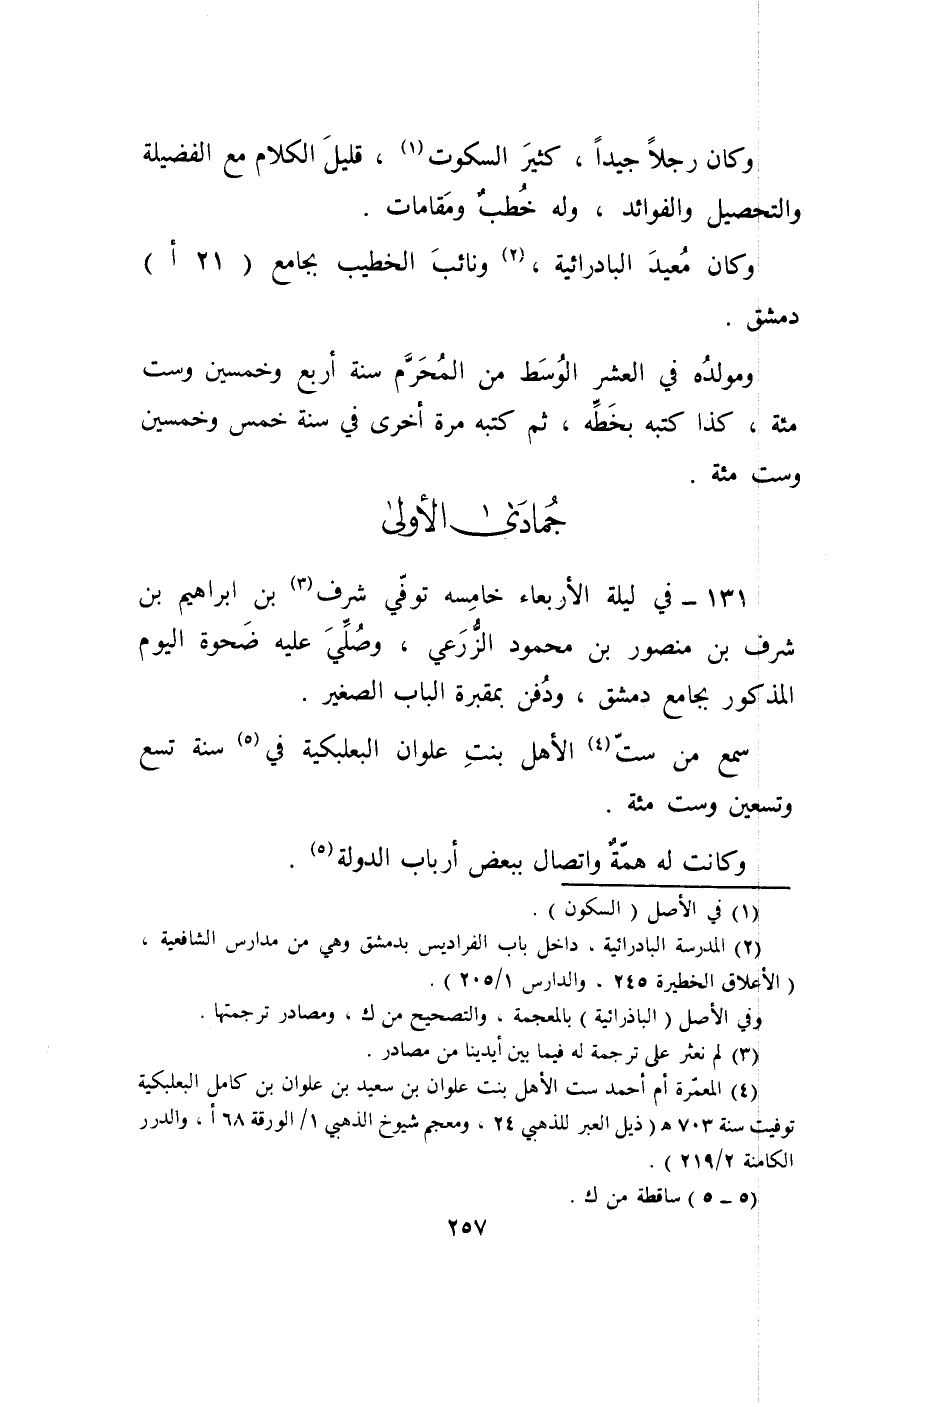 وكان رجلاً جيداً ، كثيرَ السكوت(١) ، قليلَ الكلام مع الفضيلة
والتحصيل والفوائد ، وله خُطبٌ ومَقامات .
وكان مُعيدَ البادرائية ،(٢) ونائبَ الخطيب بجامع ( ٢١ أ )
دمشق .
ومولدُه في العشر الوُسَط من المُحَرَّم سنة أربع وخمسين وست
مئة ، كذا كتبه بخَطِّه ، ثم كتبه مرة أخرى في سنة خمس وخمسين
وست مئة .
جُمادَىٰ الأولىٰ
١٣١ ـ في ليلة الأربعاء خامِسه توفّي شرف(٣) بن ابراهيم بن
شرف بن منصور بن محمود الزُّرَعي ، وصُلِّيَ عليه ضَحوة اليوم
المذكور بجامع دمشق ، ودُفن بمقبرة الباب الصغير .
سمع من ستّ(٤) الأهل بنتِ علوان البعلبكية في(٥) سنة تسع
وتسعين وست مئة .
وكانت له همّةٌ واتصال ببعض أرباب الدولة(٥) .
(١) في الأصل ( السكون ) .
(٢) المدرسة البادرائية . داخل باب الفراديس بدمشق وهي من مدارس الشافعية ،
( الأعلاق الخطيرة ٢٤٥ . والدارس ٢٠٥/١ ) .
وفي الأصل ( الباذرائية ) بالمعجمة ، والتصحيح من ك ، ومصادر ترجمتها .
(٣) لم نعثر على ترجمة له فيما بين أيدينا من مصادر .
(٤) المعمّرة أم أحمد ست الأهل بنت علوان بن سعيد بن علوان بن كامل البعلبكية
توفيت سنة ٧٠٣ ه ( ذيل العبر للذهبي ٢٤ ، ومعجم شيوخ الذهبي ١/ الورقة ٦٨ أ ، والدرر
الكامنة ٢١٩/٢ ) .
(٥ ـ ٥ ) ساقطة من ك .
٢٥٧